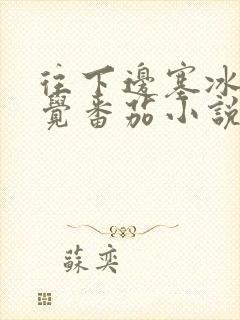 往下邊塞冰
覺番茄小說
蘇奕